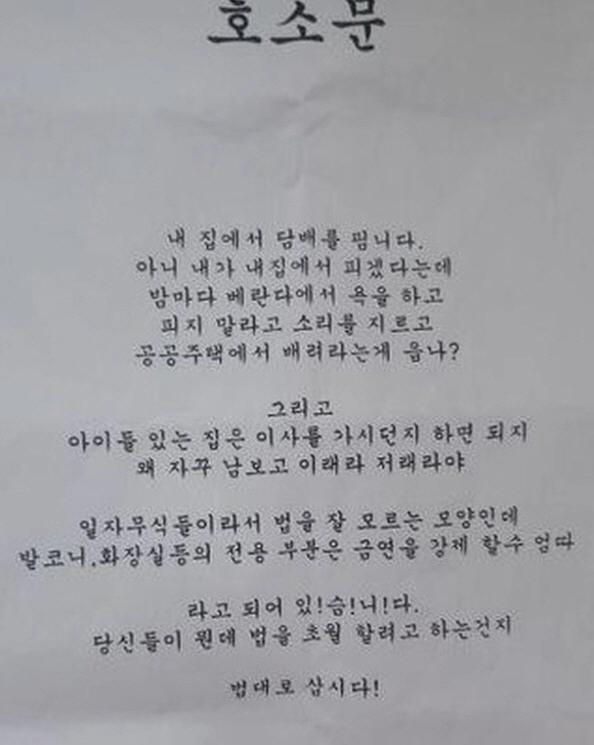 호소문
내 집에서 담배를 핍니다.
아니 내가 내집에서 피겠다는데
밤마다 베란다에서 욕을 하고
피지 말라고 소리를 지르고
공공주택에서 배려라는게 읍나?
그리고
아이들 있는 집은 이사를 가시던지 하면 되지
왜 자꾸 남보고 이래라 저래라야
일자무식들이라서 법을 잘 모르는 모양인데
발코니,화장실등의 전용 부분은 금연을 강제 할수 엄따
라고 되어 있!슴!니!다.
당신들이 뭔데 법을 초월 할려고 하는건지
법대로 삽시다!